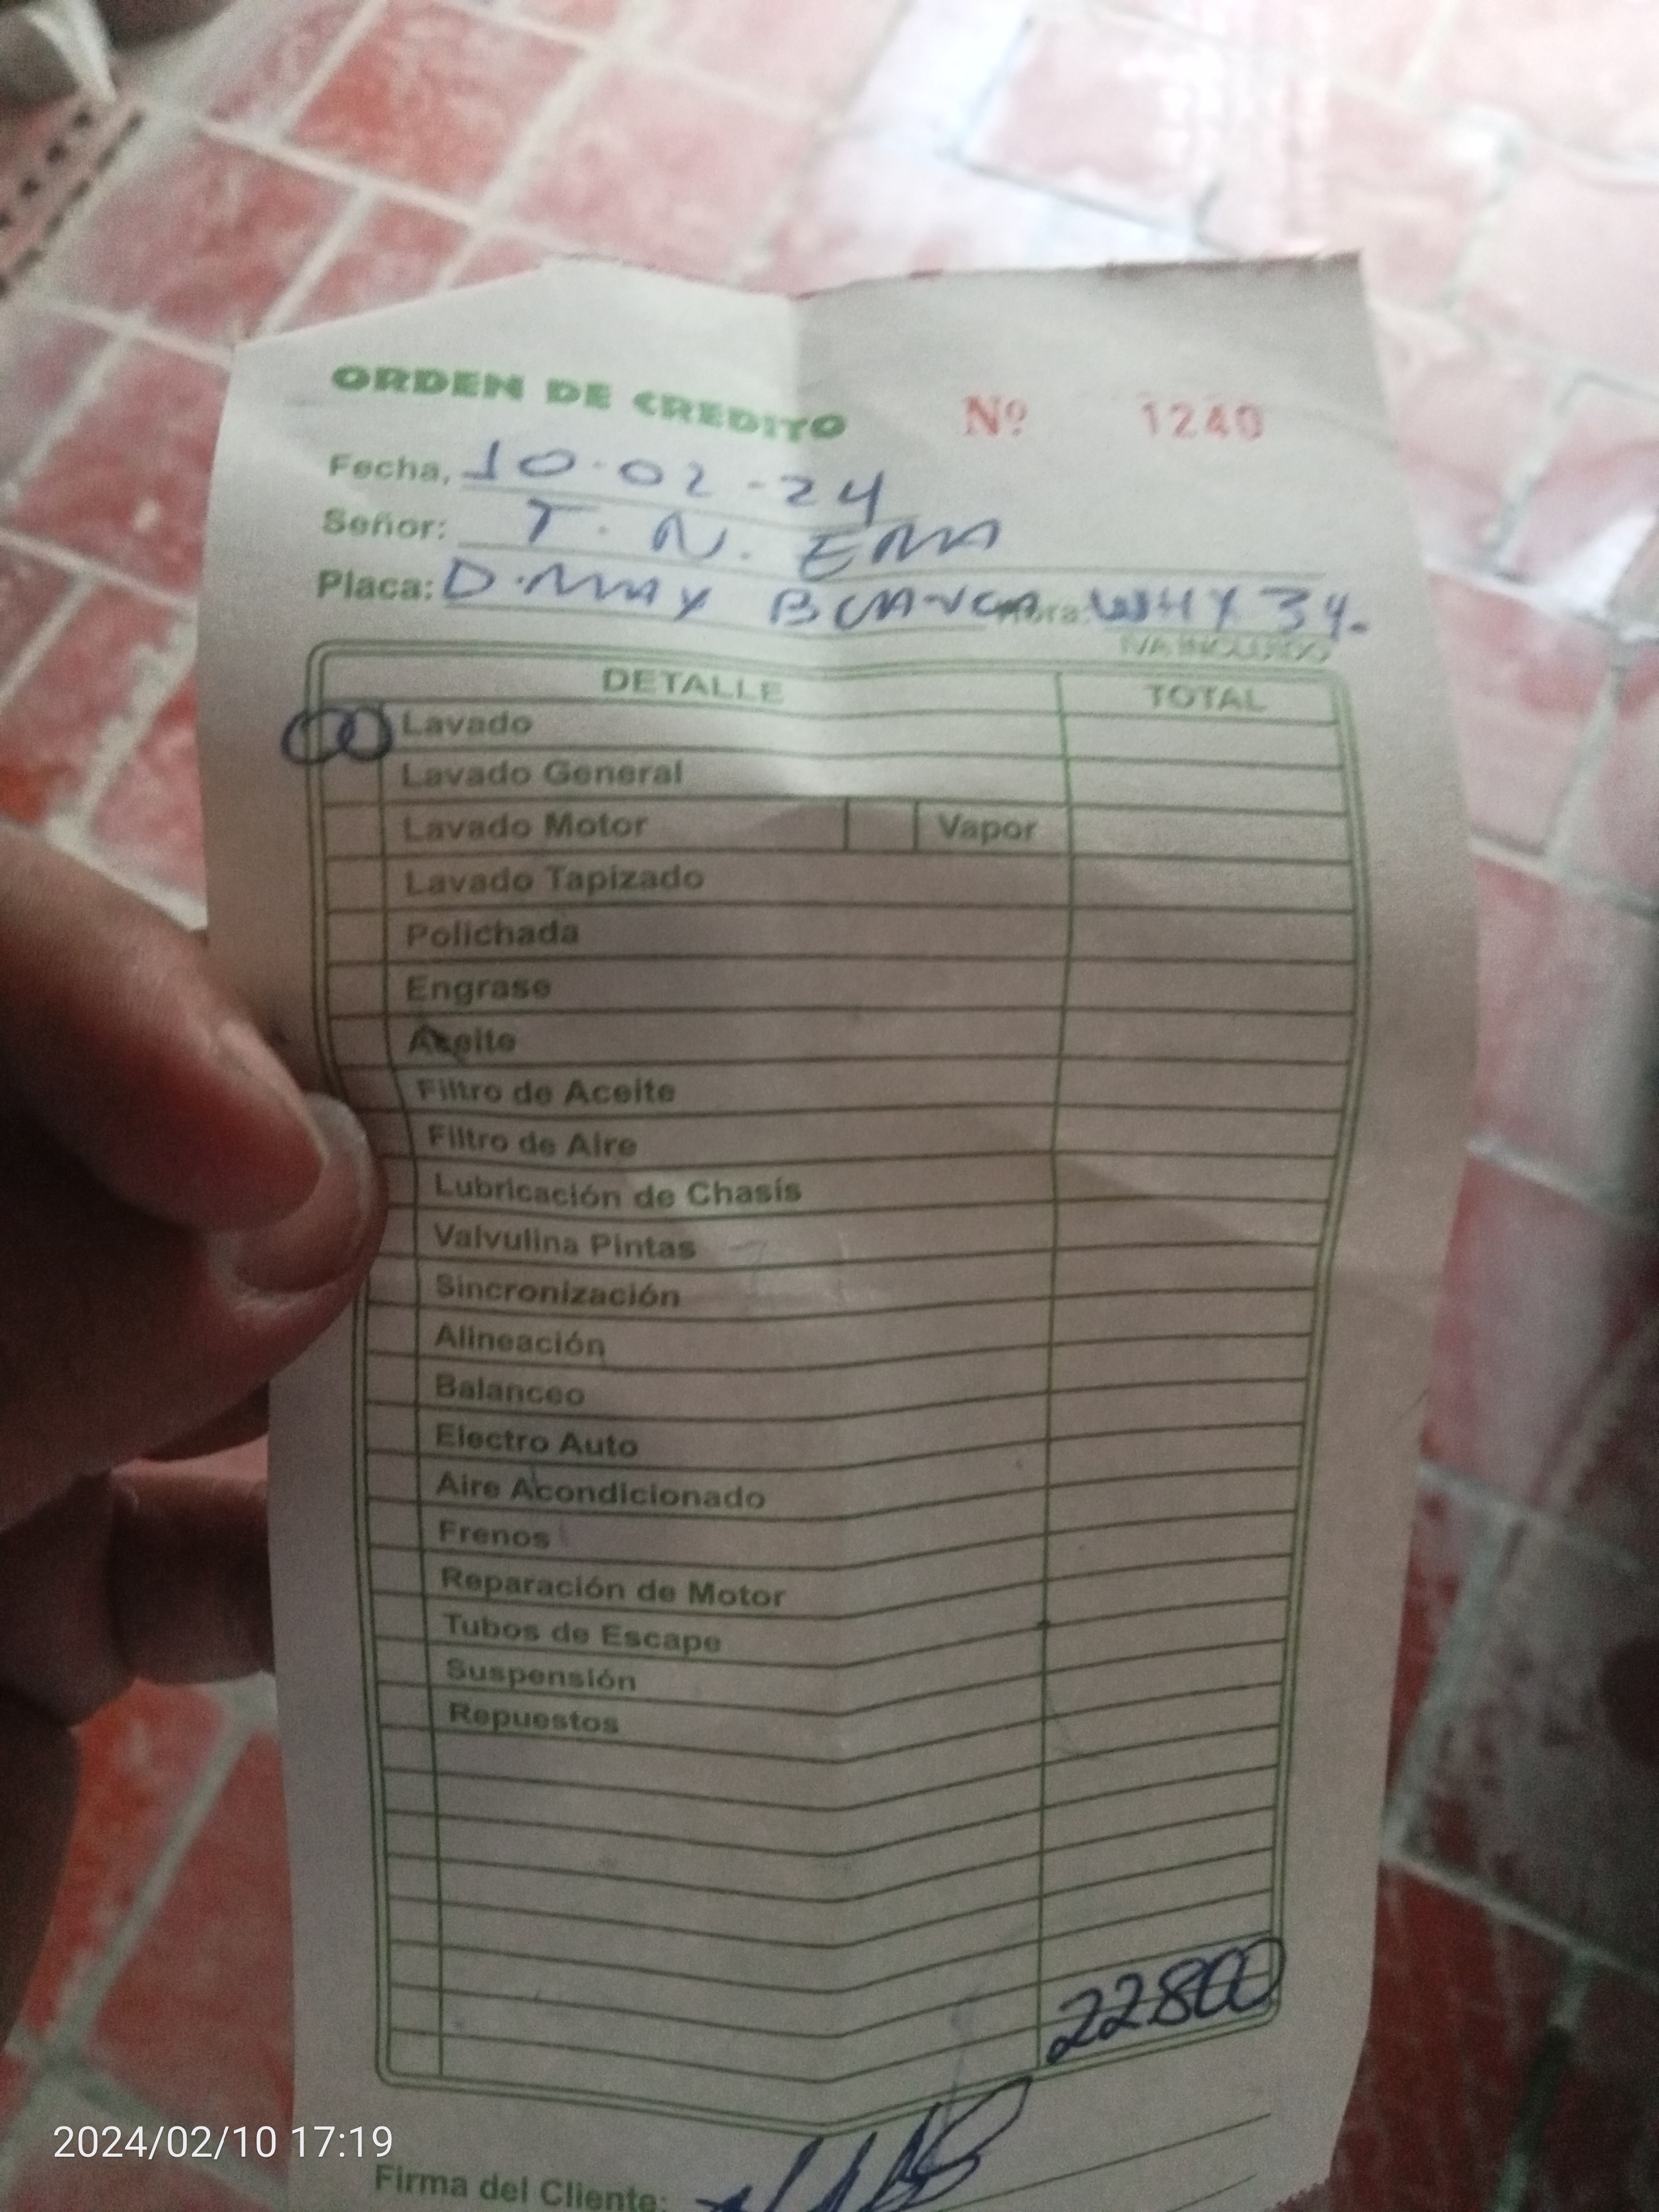 ORDEN DE CREDITO Nº 1240
Fecha, 10-02-24
Señor: T. N. EMA
Placa: D.MAX BLANCA Hora: WHY 34.
IVA INCLUIDO
DETALLE TOTAL
Lavado
Lavado General
Lavado Motor Vapor
Lavado Tapizado
Polichada
Engrase
Aceite
Filtro de Aceite
Filtro de Aire
Lubricación de Chasís
Valvulina Pintas
Sincronización
Alineación
Balanceo
Electro Auto
Aire Acondicionado
Frenos
Reparación de Motor
Tubos de Escape
Suspensión
Repuestos
22800
Firma del Cliente:
2024/02/10 17:19